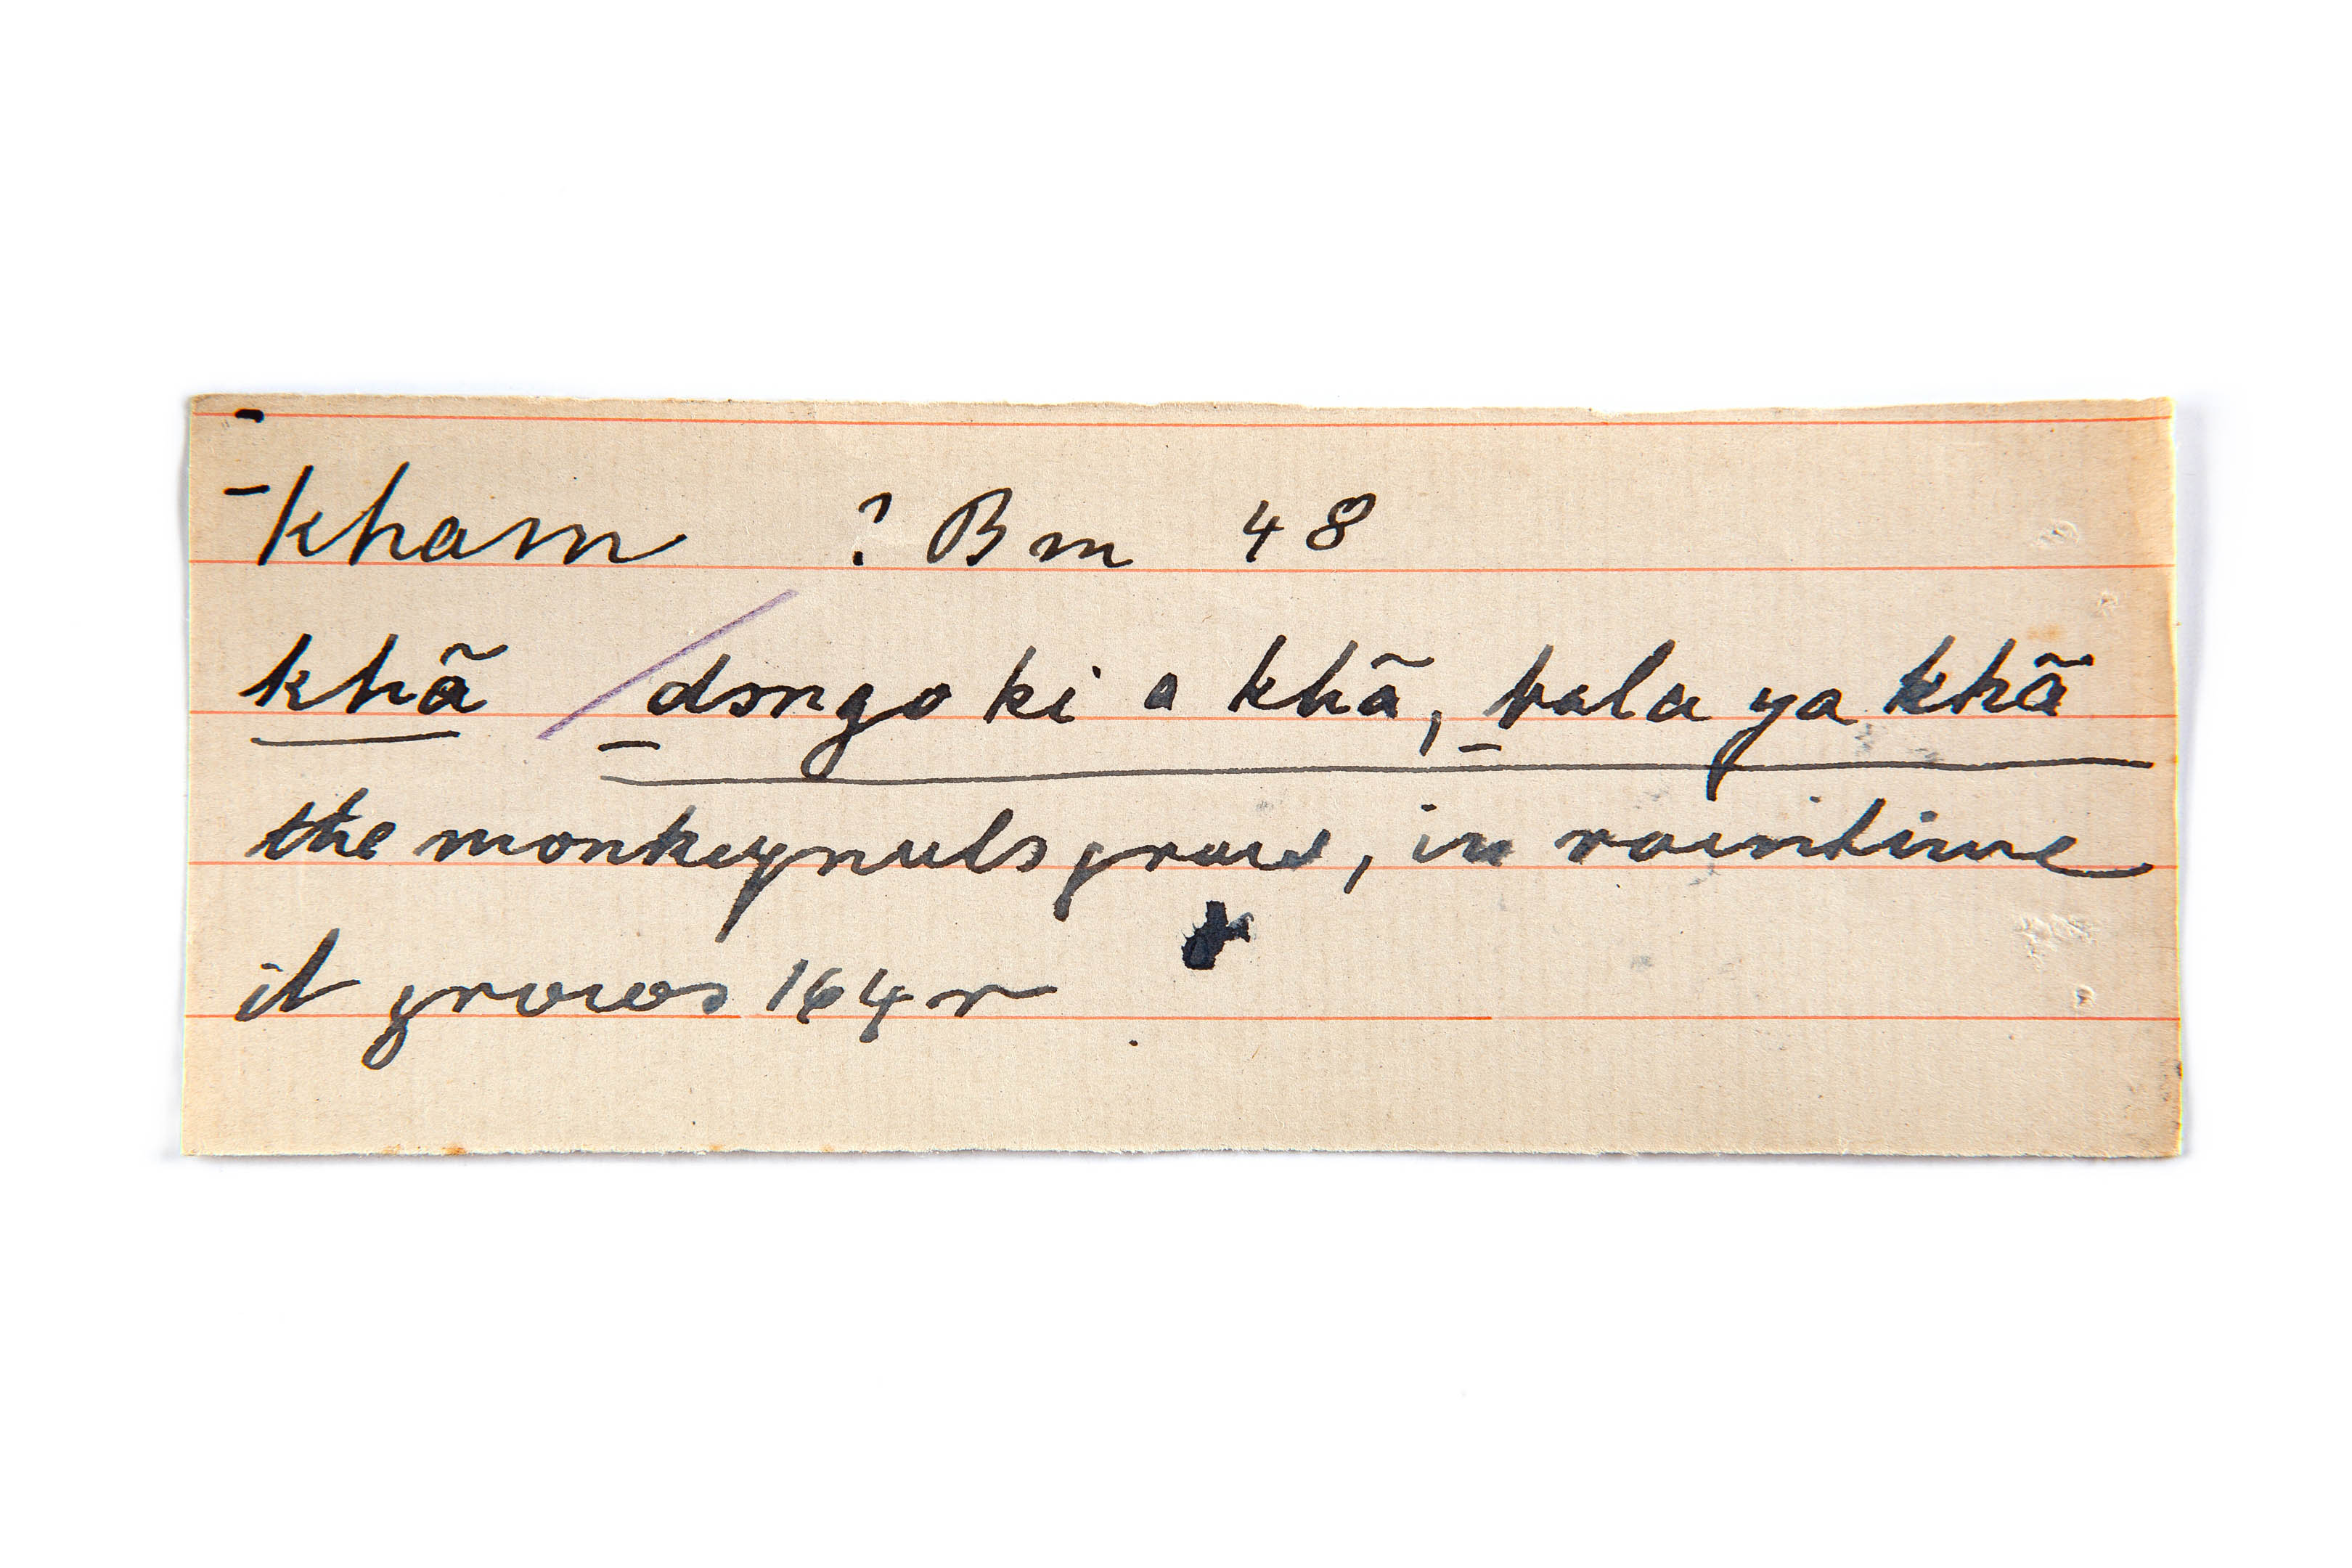 ¯kham ? Bm 48
khã _dɔngo ki a khã, _bala ya khã
the monkeynuts grow, in raintime
it grows 164r